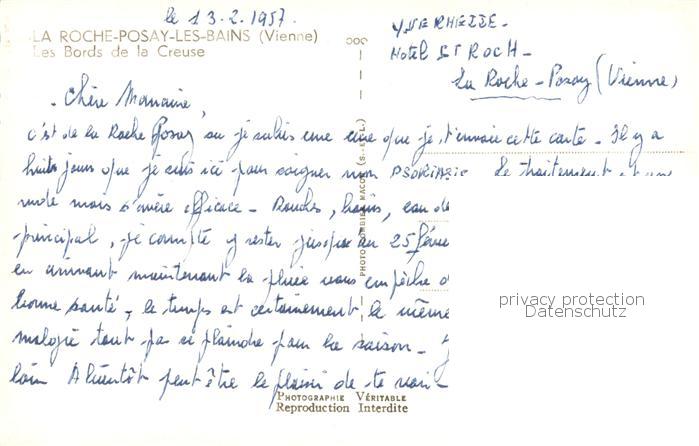 le 13.2.1957.
LA ROCHE-POSAY-LES-BAINS (Vienne)
Les Bords de la Creuse
Hotel ST ROCH -
La Roche - Posay (Vienne)
- Chère Marraine,
C'est de la Roche Posay ou je subis une cure que je t'envoie cette carte - Il y a
huit jours que je suis ici pour soigner mon PSORIASIS Le traitement est
rude mais s'avère efficace - Douches, bains, eau de
principal, je compte y rester jusqu'au 25 févr
en arrivant maintenant la pluie nous empêche d
bonne santé, le temps est certainement le même
tout pas se plaindre pour la saison -
loin A bientôt peut être le plaisir de te voir -
PHOTO COMBIER MACON (S.-ET-L.)
PHOTOGRAPHIE VÉRITABLE
Reproduction Interdite
privacy protection
Datenschutz